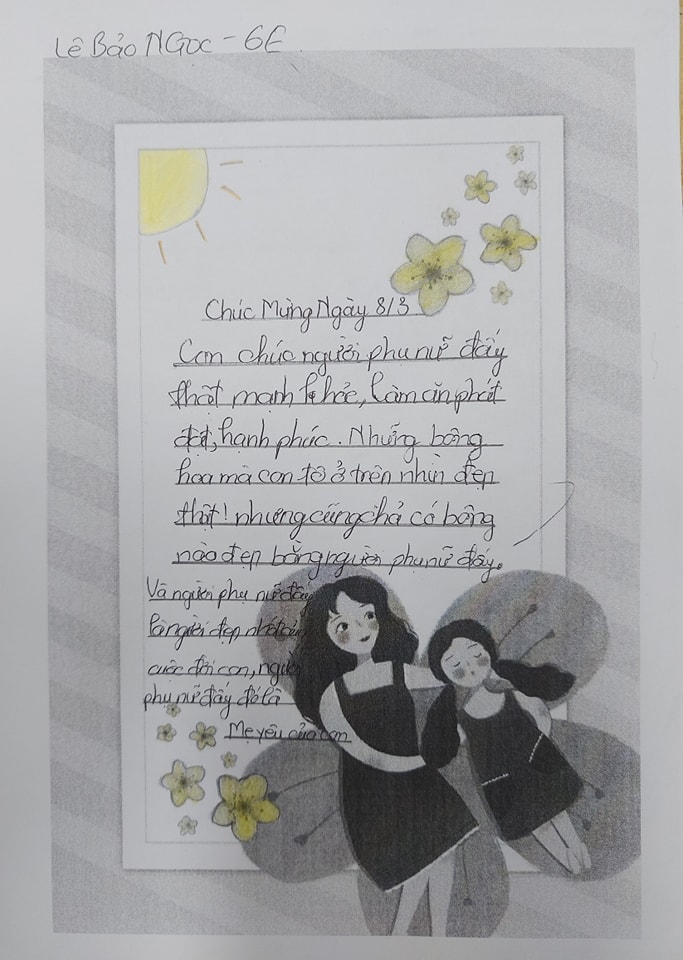 Lê Bảo Ngọc - 6E
Chúc Mừng Ngày 8/3
Con chúc người phụ nữ đấy
thật mạnh khỏe, làm ăn phát
đạt, hạnh phúc. Những bông
hoa mà con tô ở trên nhìn đẹp
thật! nhưng cũng chả có bông
nào đẹp bằng người phụ nữ đấy.
Và người phụ nữ đấy
là người đẹp nhất
cuộc đời con, người
phụ nữ đấy đó là
Mẹ yêu của con